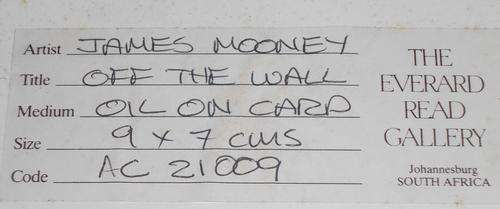 Artist JAMES MOONEY
Title OFF THE WALL
Medium OIL ON CARD
Size 9 x 7 cms
Code AC 21009
THE
EVERARD
READ
GALLERY
Johannesburg
SOUTH AFRICA